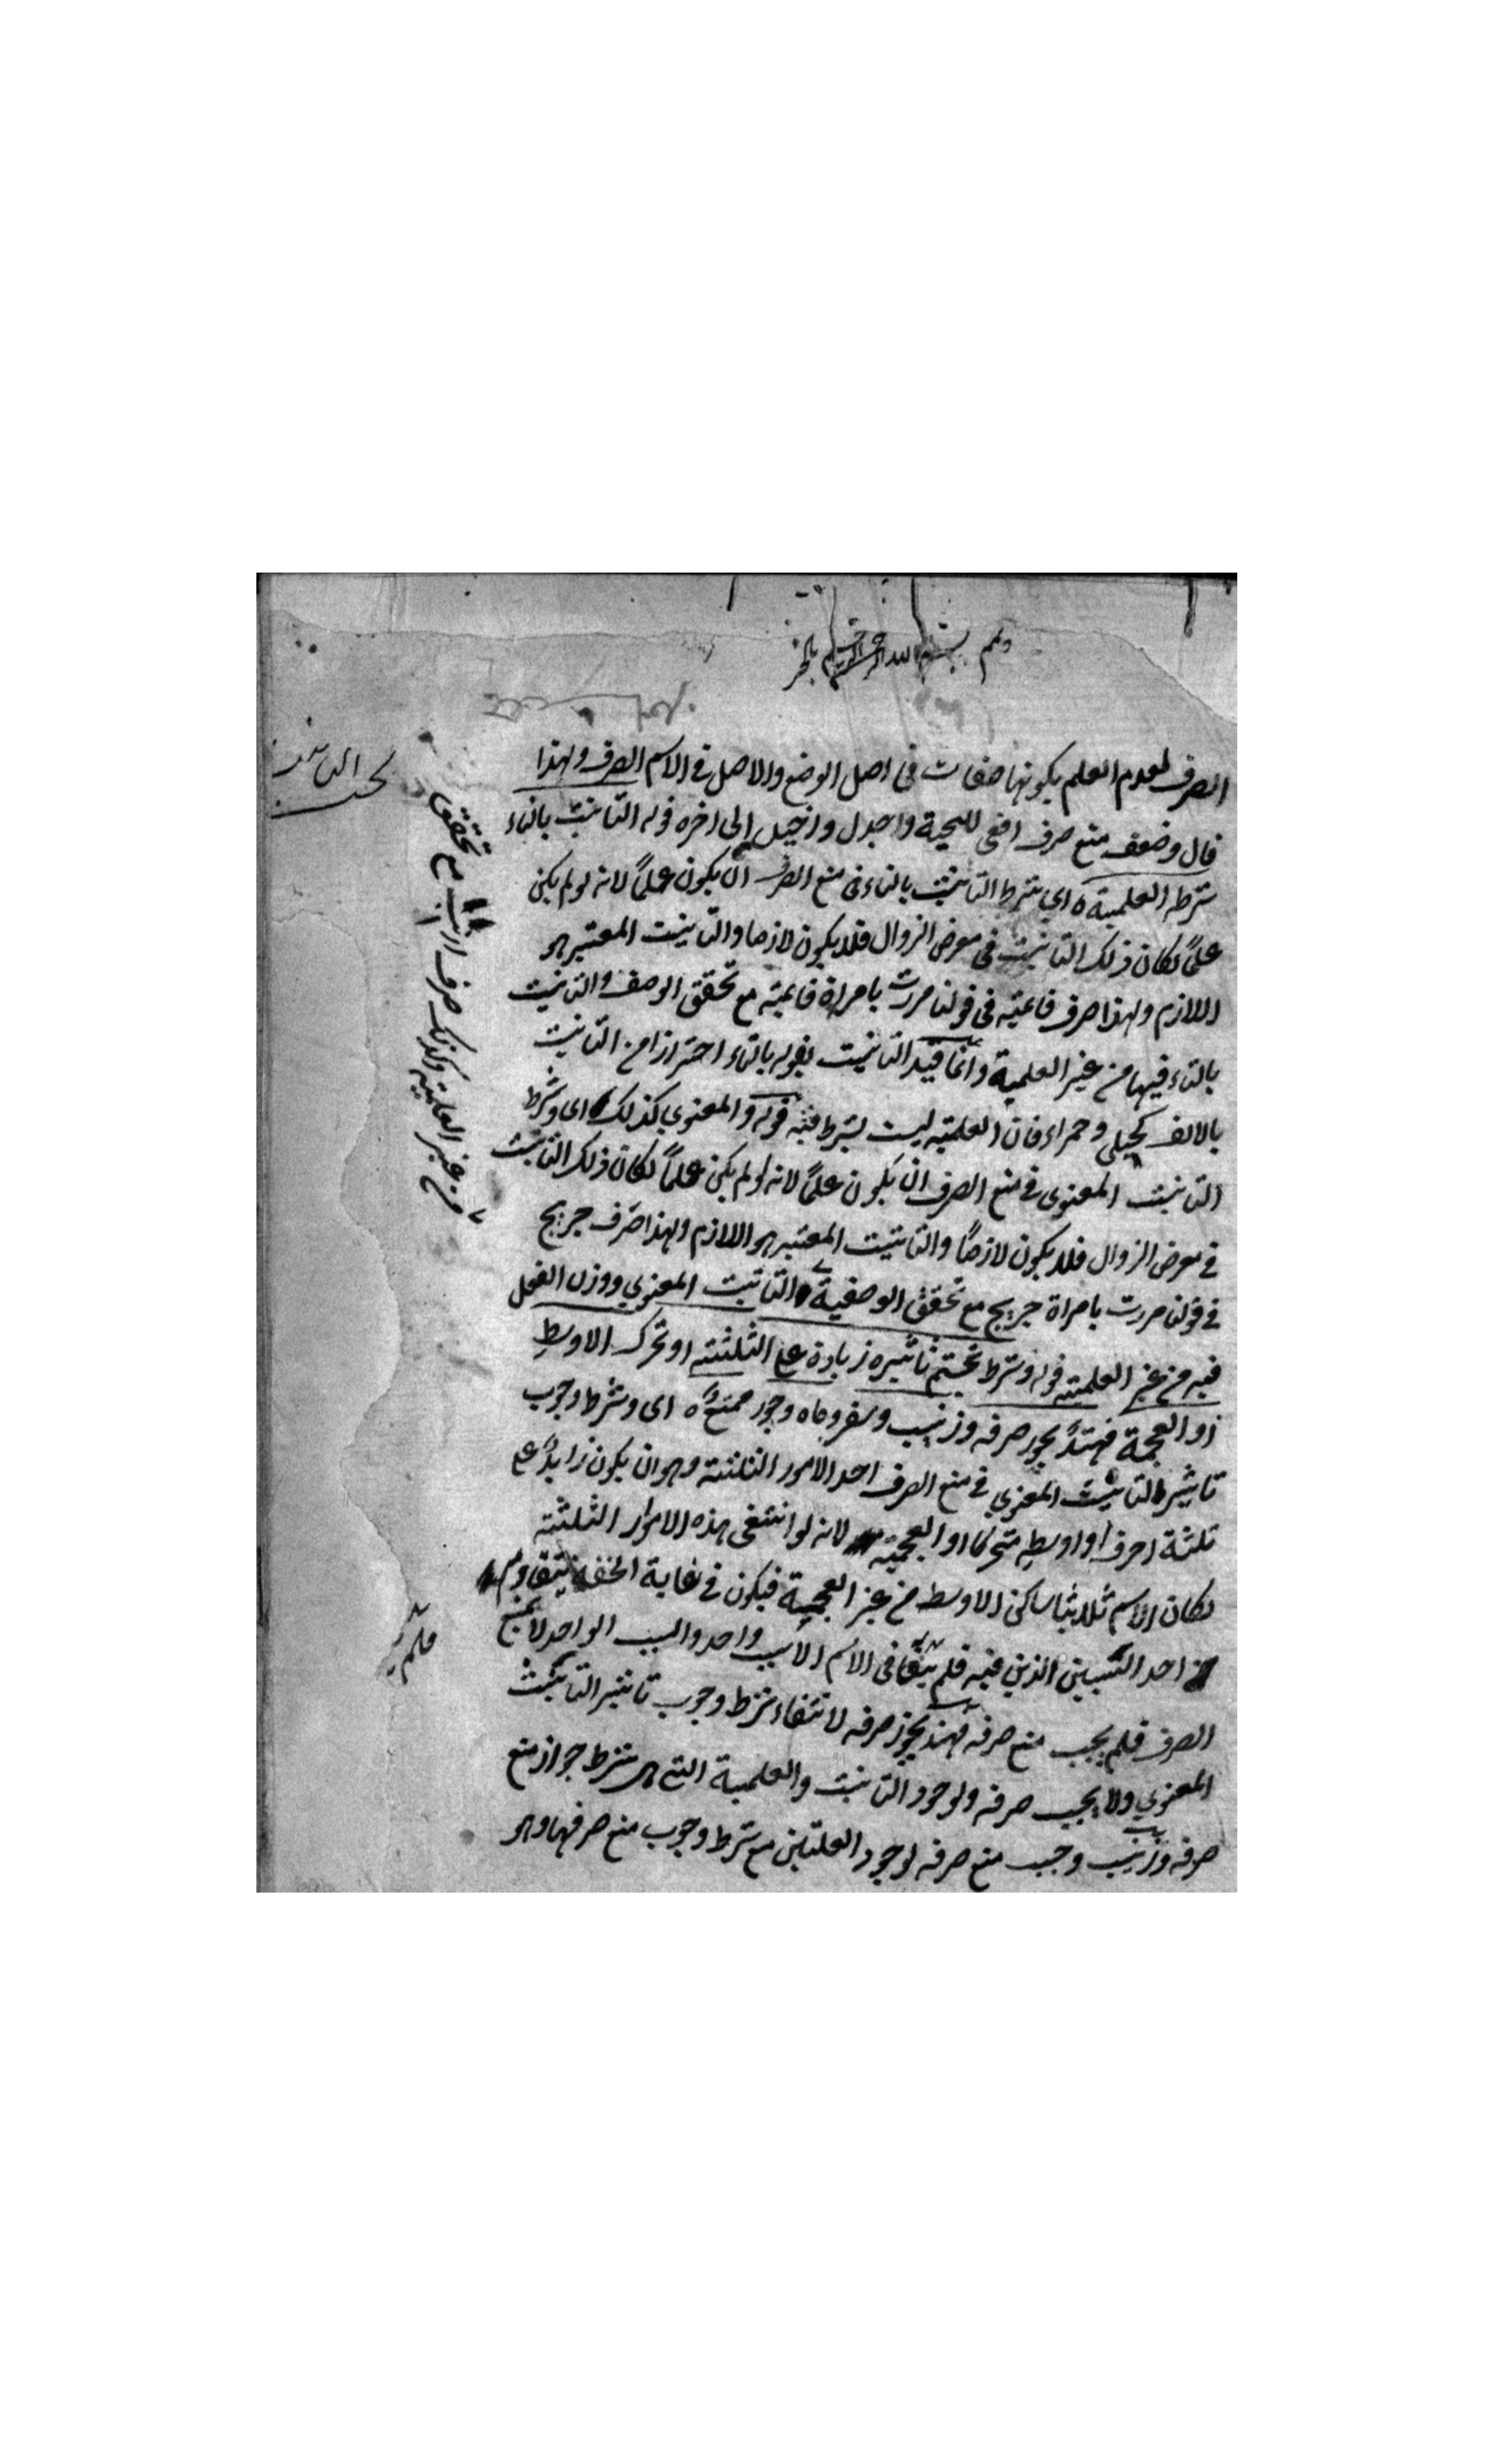 وتمم بسم الله الرحمن الرحيم بالخير
الصرف لعدم العلم بكونها صفات فى اصل الوضع والاصل فى الاسم الصرف ولهذا
قال وضعف منع صرف افعى للحية واجدل واخيل الى اخره قوله التانيث بالتاء
شرطه العلمية اى شرط التانيث بالتاء فى منع الصرف ان يكون علماً لانه لو لم يكن
علماً لكان ذلك التانيث فى معرض الزوال فلا يكون لازما والتانيث المعتبر هو
اللازم ولهذا صرف قائمة فى قولنا مررت بامراة قائمة مع تحقق الوصف والتانيث
بالتاء فيها من غير العلمية وانما قيد التانيث بقوله بالتاء احترازا من التانيث
بالالف كحبلى وحمراء فان العلمية ليست بشرط فيه قوله والمعنوي كذلك اى وشرط
التانيث المعنوى فى منع الصرف ان يكون علماً لانه لو لم يكن علماً لكان ذلك التانيث
فى معرض الزوال فلا يكون لازماً والتانيث المعتبر هو اللازم ولهذا صرف جريح
فى قولنا مررت بامراة جريح مع تحقق الوصفية والتانيث المعنوي ووزن الفعل
فيه من غير العلمية قوله وشرط تحتم تاثيره زيادة على الثلثة او تحرك الاوسط
او العجمة فهند يجوز صرفه وزينب وسقر وماه وجور ممتنع اى وشرط وجوب
تاثير التانيث المعنوي فى منع الصرف احد الامور الثلثة وهو ان يكون زايداً على
ثلثة احرف او اوسطه متحركا او العجمية لانه لو انتفى هذه الامور الثلثة
لكان الاسم ثلاثيا ساكن الاوسط من غير العجمية فيكون فى غاية الخفة يتقاوم
احد السببين الذين فيه فلم يبقا فى الاسم الا سبب واحد والسبب الواحد لا يمنع
الصرف فلم يجب منع صرفه فهند يجوز صرفه لانتفاء شرط وجوب تاثير التانيث
المعنوي ولا يجب صرفه ولوجود التانيث والعلمية التى هى شرط جواز منع
صرفه وزينب وجب منع صرفه لوجود العلتين مع شرط وجوب منع صرفهما وهو
بحث التانيث
وكذلك صرف ارنب مع تحقق
من غير العلمية